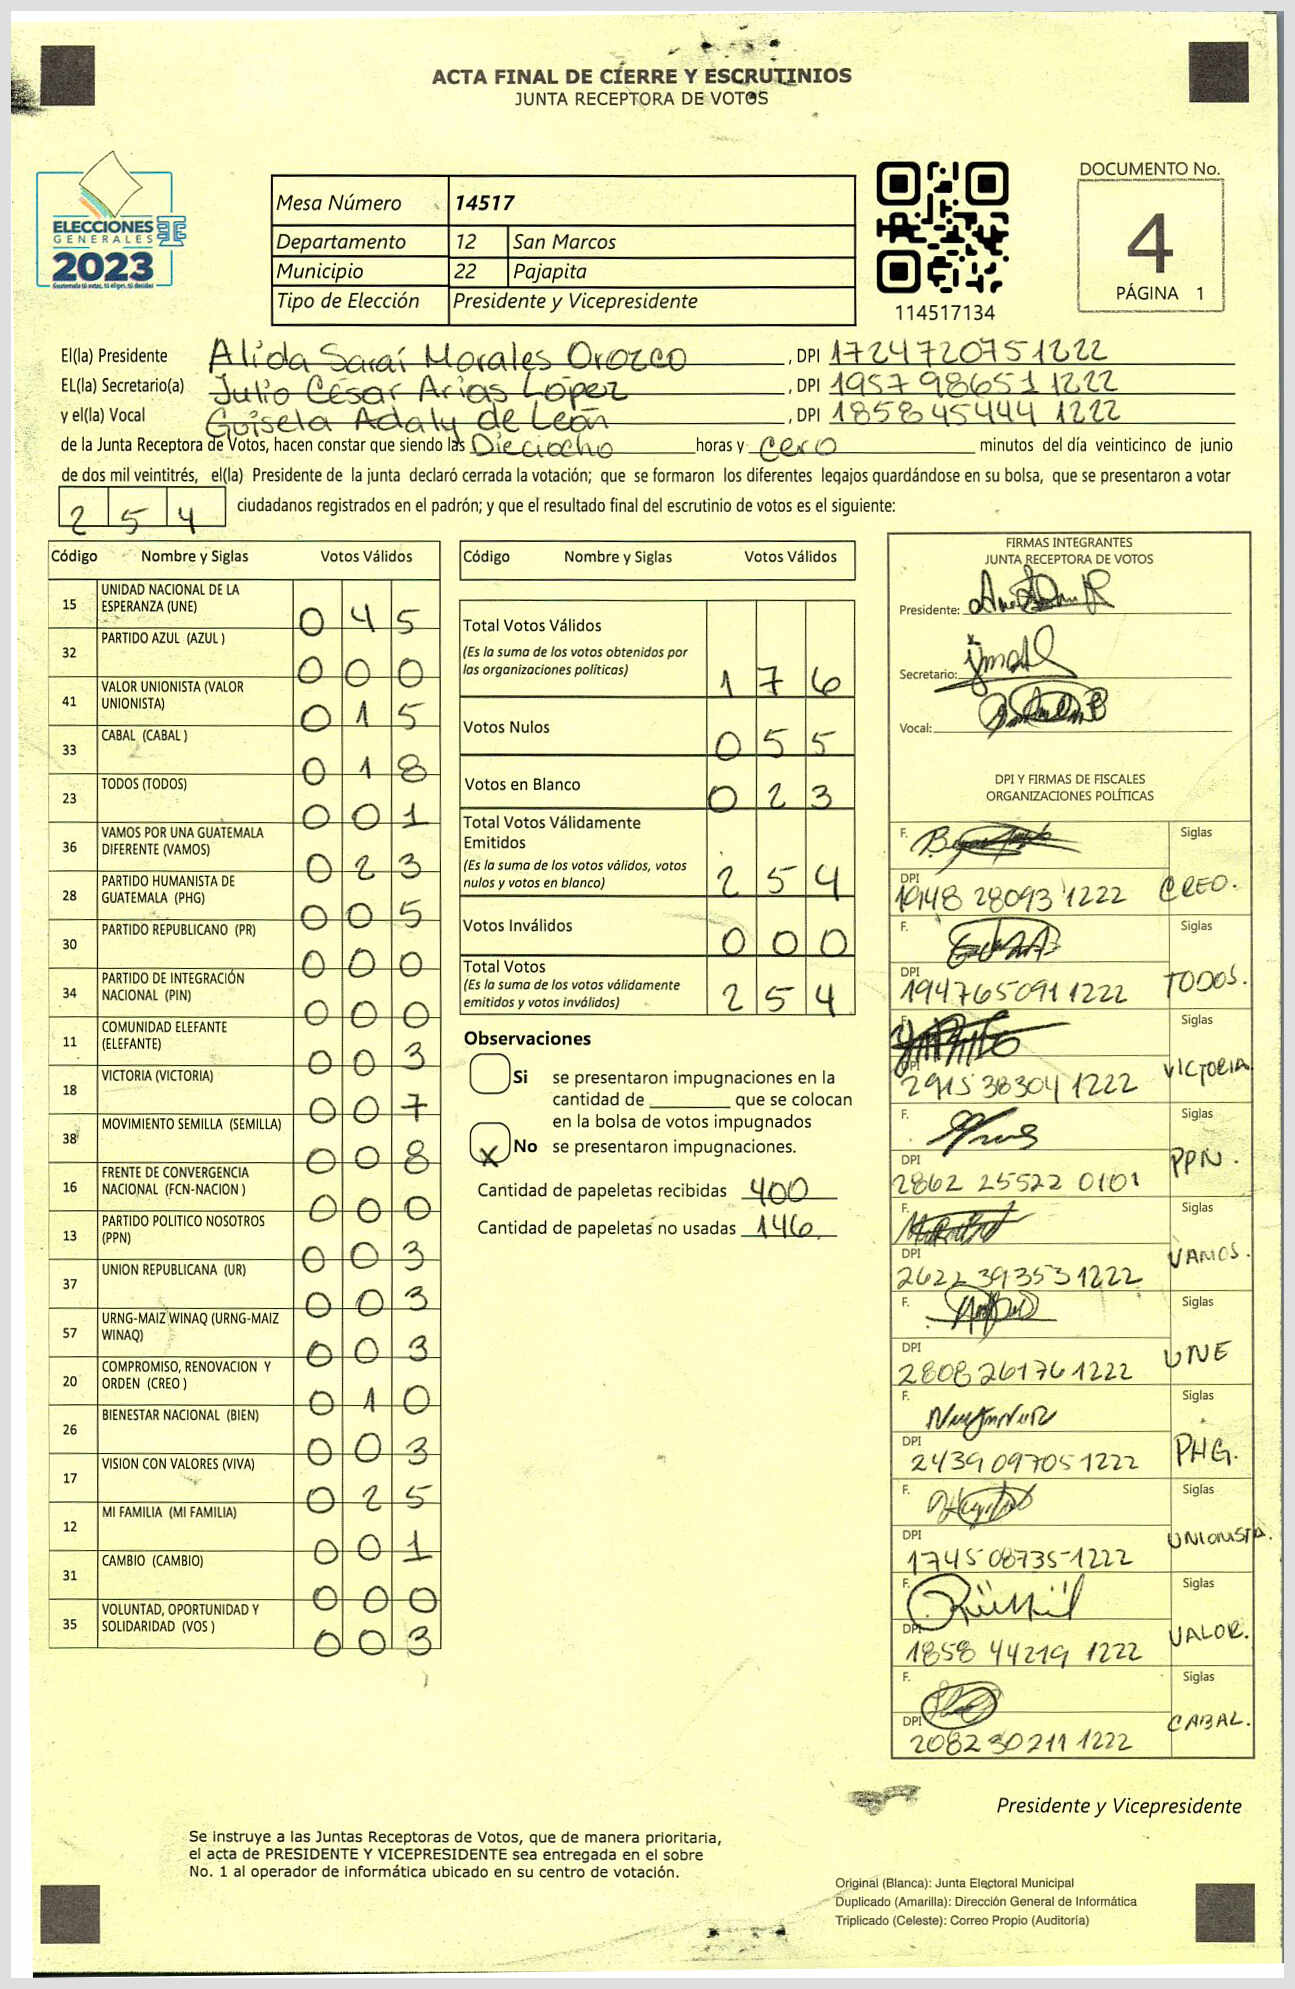 ACTA FINAL DE CIERRE Y ESCRUTINIOS
JUNTA RECEPTORA DE VOTOS
ELECCIONES
GENERALES
2023
Guatemala tú votas, tú eliges, tú decides
Mesa Número 14517
Departamento 12 San Marcos
Municipio 22 Pajapita
Tipo de Elección Presidente y Vicepresidente
114517134
DOCUMENTO No.
4
PÁGINA 1
El(la) Presidente Alida Saraí Morales Orozco, DPI 1724720751222
EL(la) Secretario(a) Julio César Arias López, DPI 1957 98651 1222
y el(la) Vocal Guisela Adaly de León, DPI 1858 45444 1222
de la Junta Receptora de Votos, hacen constar que siendo las Dieciocho horas y cero minutos del día veinticinco de junio
de dos mil veintitrés, el(la) Presidente de la junta declaró cerrada la votación; que se formaron los diferentes legajos guardándose en su bolsa, que se presentaron a votar
2 5 4 ciudadanos registrados en el padrón; y que el resultado final del escrutinio de votos es el siguiente:
Código Nombre y Siglas Votos Válidos
15 UNIDAD NACIONAL DE LA ESPERANZA (UNE) 0 4 5
32 PARTIDO AZUL (AZUL ) 0 0 0
41 VALOR UNIONISTA (VALOR UNIONISTA) 0 1 5
33 CABAL (CABAL ) 0 1 8
23 TODOS (TODOS) 0 0 1
36 VAMOS POR UNA GUATEMALA DIFERENTE (VAMOS) 0 2 3
28 PARTIDO HUMANISTA DE GUATEMALA (PHG) 0 0 5
30 PARTIDO REPUBLICANO (PR) 0 0 0
34 PARTIDO DE INTEGRACIÓN NACIONAL (PIN) 0 0 0
11 COMUNIDAD ELEFANTE (ELEFANTE) 0 0 3
18 VICTORIA (VICTORIA) 0 0 7
38 MOVIMIENTO SEMILLA (SEMILLA) 0 0 8
16 FRENTE DE CONVERGENCIA NACIONAL (FCN-NACION ) 0 0 0
13 PARTIDO POLITICO NOSOTROS (PPN) 0 0 3
37 UNION REPUBLICANA (UR) 0 0 3
57 URNG-MAIZ WINAQ (URNG-MAIZ WINAQ) 0 0 3
20 COMPROMISO, RENOVACION Y ORDEN (CREO ) 0 1 0
26 BIENESTAR NACIONAL (BIEN) 0 0 3
17 VISION CON VALORES (VIVA) 0 2 5
12 MI FAMILIA (MI FAMILIA) 0 0 1
31 CAMBIO (CAMBIO) 0 0 0
35 VOLUNTAD, OPORTUNIDAD Y SOLIDARIDAD (VOS ) 0 0 3
Código Nombre y Siglas Votos Válidos
Total Votos Válidos
(Es la suma de los votos obtenidos por
las organizaciones políticas) 1 7 6
Votos Nulos 0 5 5
Votos en Blanco 0 2 3
Total Votos Válidamente
Emitidos
(Es la suma de los votos válidos, votos
nulos y votos en blanco) 2 5 4
Votos Inválidos 0 0 0
Total Votos
(Es la suma de los votos válidamente
emitidos y votos inválidos) 2 5 4
Observaciones
Si se presentaron impugnaciones en la
cantidad de ________ que se colocan
en la bolsa de votos impugnados
X No se presentaron impugnaciones.
Cantidad de papeletas recibidas 400
Cantidad de papeletas no usadas 146
FIRMAS INTEGRANTES
JUNTA RECEPTORA DE VOTOS
Presidente:
Secretario:
Vocal:
DPI Y FIRMAS DE FISCALES
ORGANIZACIONES POLÍTICAS
F. Siglas
DPI 1948 28093 1222 CREO.
F. Siglas
DPI 1947650911222 TODOS.
F. Siglas
DPI 2915 38304 1222 VICTORIA
F. Siglas
DPI 2862 25522 0101 PPN.
F. Siglas
DPI 2622 39353 1222 VAMOS.
F. Siglas
DPI 2808 26176 1222 UNE
F. Siglas
DPI 2439 09705 1222 PHG.
F. Siglas
DPI 1745 08735 1222 UNIONISTA.
F. Siglas
DPI 1858 44219 1222 VALOR.
F. Siglas
DPI 2082 30211 1222 CABAL.
Presidente y Vicepresidente
Se instruye a las Juntas Receptoras de Votos, que de manera prioritaria,
el acta de PRESIDENTE Y VICEPRESIDENTE sea entregada en el sobre
No. 1 al operador de informática ubicado en su centro de votación.
Original (Blanca): Junta Electoral Municipal
Duplicado (Amarilla): Dirección General de Informática
Triplicado (Celeste): Correo Propio (Auditoría)